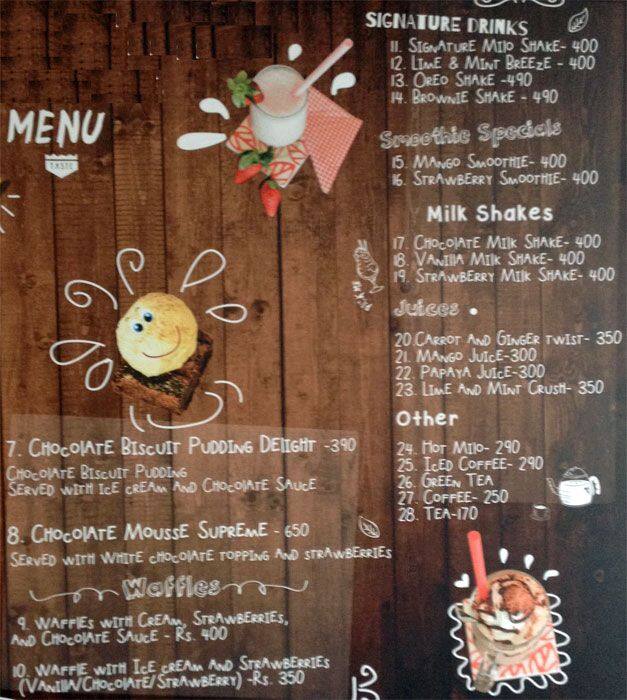 MENU
TASTE
7. Chocolate Biscuit Pudding Delight -390
Chocolate Biscuit Pudding
Served with ice cream and Chocolate Sauce
8. Chocolate Mousse Supreme - 650
Served with white chocolate topping and strawberries
Waffles
9. Waffles with Cream, Strawberries,
and Chocolate Sauce - Rs. 400
10. Waffle with Ice cream and Strawberries
(Vanilla/Chocolate/Strawberry) -Rs. 350
SIGNATURE DRINKS
11. Signature Milo Shake- 400
12. Lime & Mint Breeze - 400
13. Oreo Shake -490
14. Brownie Shake - 490
Smoothie Specials
15. Mango Smoothie- 400
16. Strawberry Smoothie- 400
Milk Shakes
17. Chocolate Milk Shake- 400
18. Vanilla Milk Shake- 400
19. Strawberry Milk Shake- 400
Juices
20.Carrot and Ginger twist- 350
21. Mango Juice-300
22. Papaya Juice-300
23. Lime and Mint Crush- 350
Other
24. Hot Milo- 290
25. Iced Coffee- 290
26. Green Tea
27. Coffee- 250
28. Tea-170